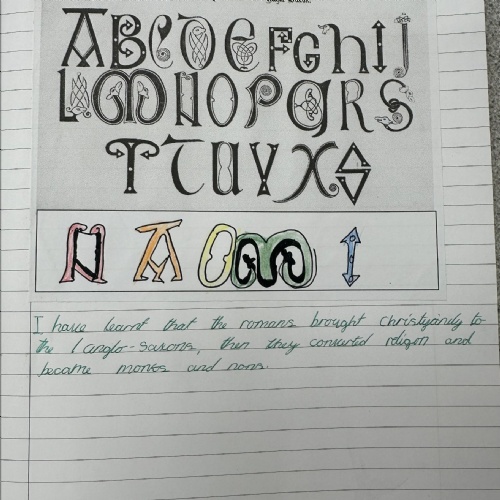 ABCDEFGHIJ
LMNOPQRS
TTUVXS
NAOMI
I have learnt that the romans brought christyandy to
the anglo-saxons, then they converted religon and
became monks and nons.